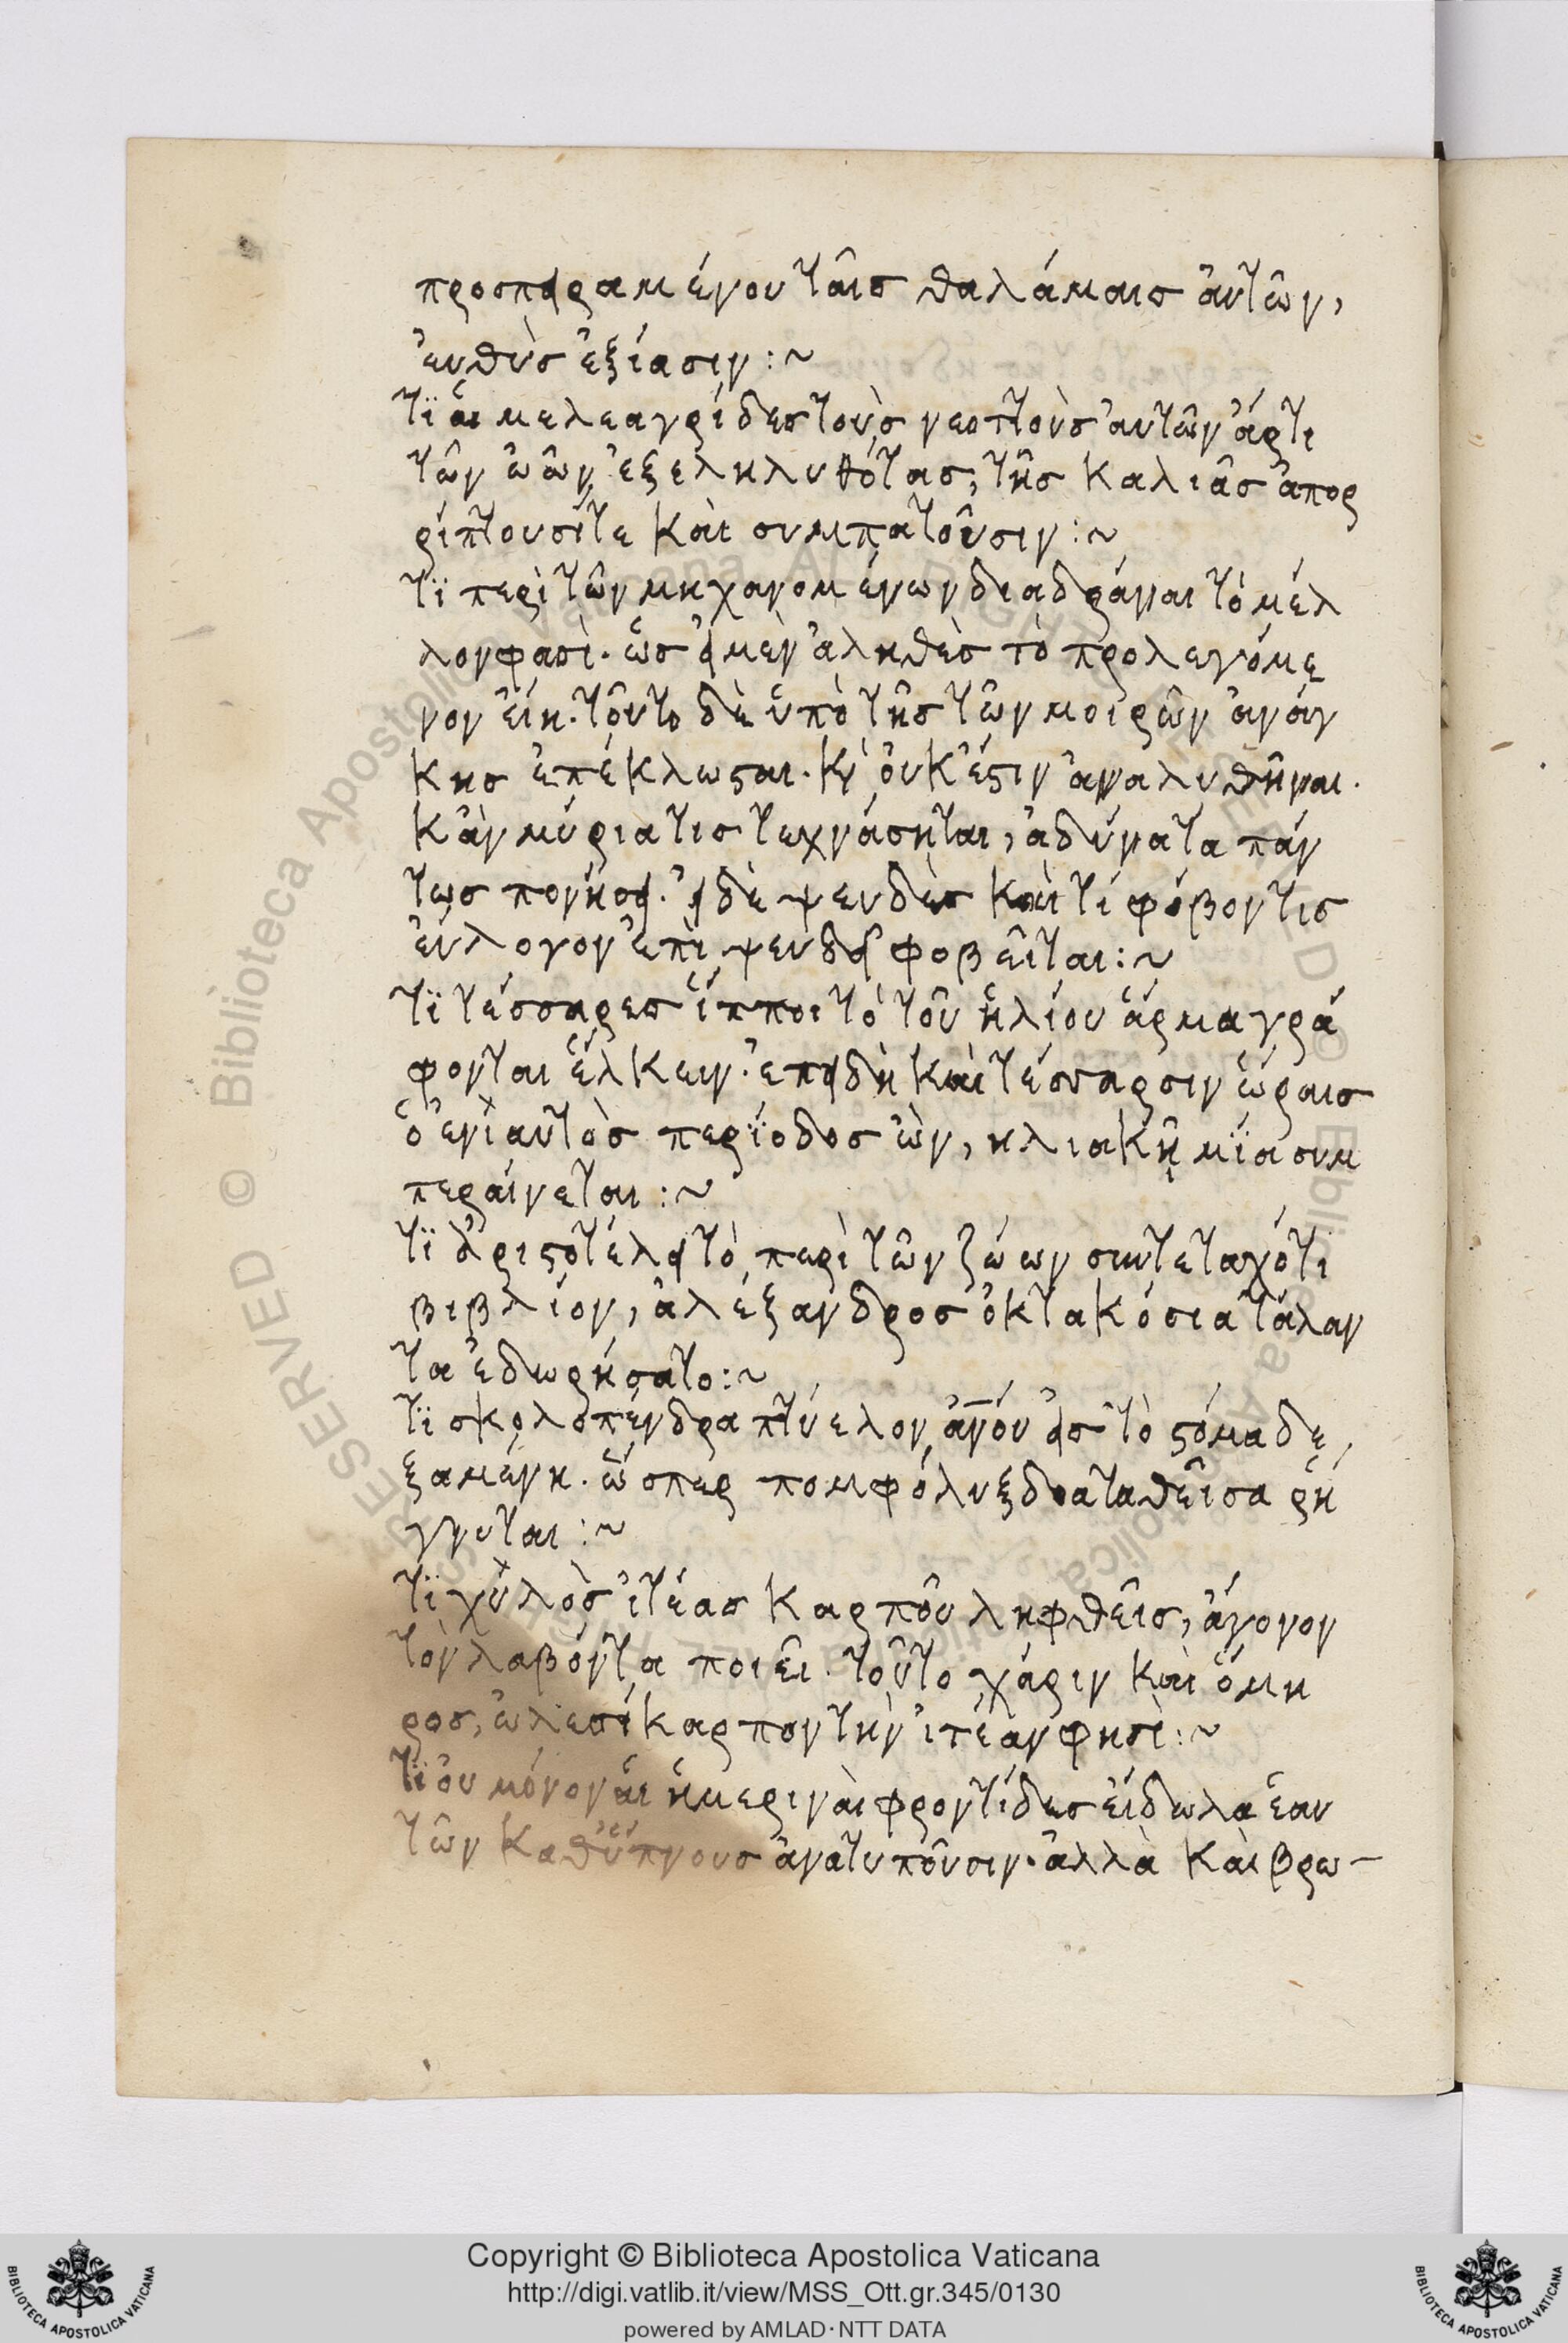 προσπειραμένου ταῖσ θαλάμαισ ἀυτῶν,
ἐυθὺσ ἐξίασιν :~
τϊ ἁι μελεαγρίδεσ τοὺσ νεοττοὺσ ἀυτῶν ἄρτι
τῶν ὠῶν ἐξεληλυθότασ, τῆσ καλιᾶσ ἀπορ
ρίπτουσίτε καὶ συμπατοῦσιν :~
τϊ περὶ τῶν μηχανομένων διαδράναι τὸ μέλ
λον φασὶ. ὡσ ἐι μὲν ἀληθὲσ τὸ προλεγόμε
νον ἐίη. τοῦτο δὲ ὑπὸ τῆσ τῶν μοιρῶν ἀνάγ
κησ ἐπέκλωσται. κὶ ὀυκ ἔστιν ἀναλυθῆναι.
κἀν μύρια τισ τεχνάσηται, ἀδύνατα πάν
τωσ πονήσει. ἐι δὲ ψευδὲσ καὶ τί φόβον τισ
ἐύλογον ἐπὶ ψευδεῖ φοβεῖται :~
τϊ τέσσαρεσ ἵπποι τὸ τοῦ ἡλίου ἅρμα γρά
φονται ἕλκειν. ἐπειδὴ καὶ τέσσαρσιν ὥραισ
ὁ ἐνϊαυτὸσ περϊόδοσ ὢν, ηλιακῆ μϊα συμ
περαίνεται :~
τϊ ἀριστοτέλει τὸ περὶ τῶν ζώων συντεταχότι
βιβλίον, ἀλέξανδροσ ὀκτακόσια τάλαν
τα ἐδωρήσατο :~
τϊ σκολοπένδρα πτύελον ἀν̅όυ ἐισ τὸ στόμα δε
ξαμένη. ὥσπερ πομφόλυξ διαταθεῖσα ῥή
γνυται :~
τϊ χϋλὸσ ἰτέασ καρποῦ ληφθεὶσ, ἄγονον
τὸν λαβόντα ποιεῖ. τοῦτο χάριν καὶ ὅμη
ροσ, ὠλεσίκαρπον τὴν ἰτέαν φησὶ :~
τϊ ὀυ μόνον ἁι ἡμεριναὶ φροντίδεσ ἐίδωλα ἑαυ
τῶν καθϋπνουσ ἀνατυποῦσιν. ἀλλὰ καὶ βρω–
Copyright © Biblioteca Apostolica Vaticana
http://digi.vatlib.it/view/MSS_Ott.gr.345/0130
powered by AMLAD·NTT DATA